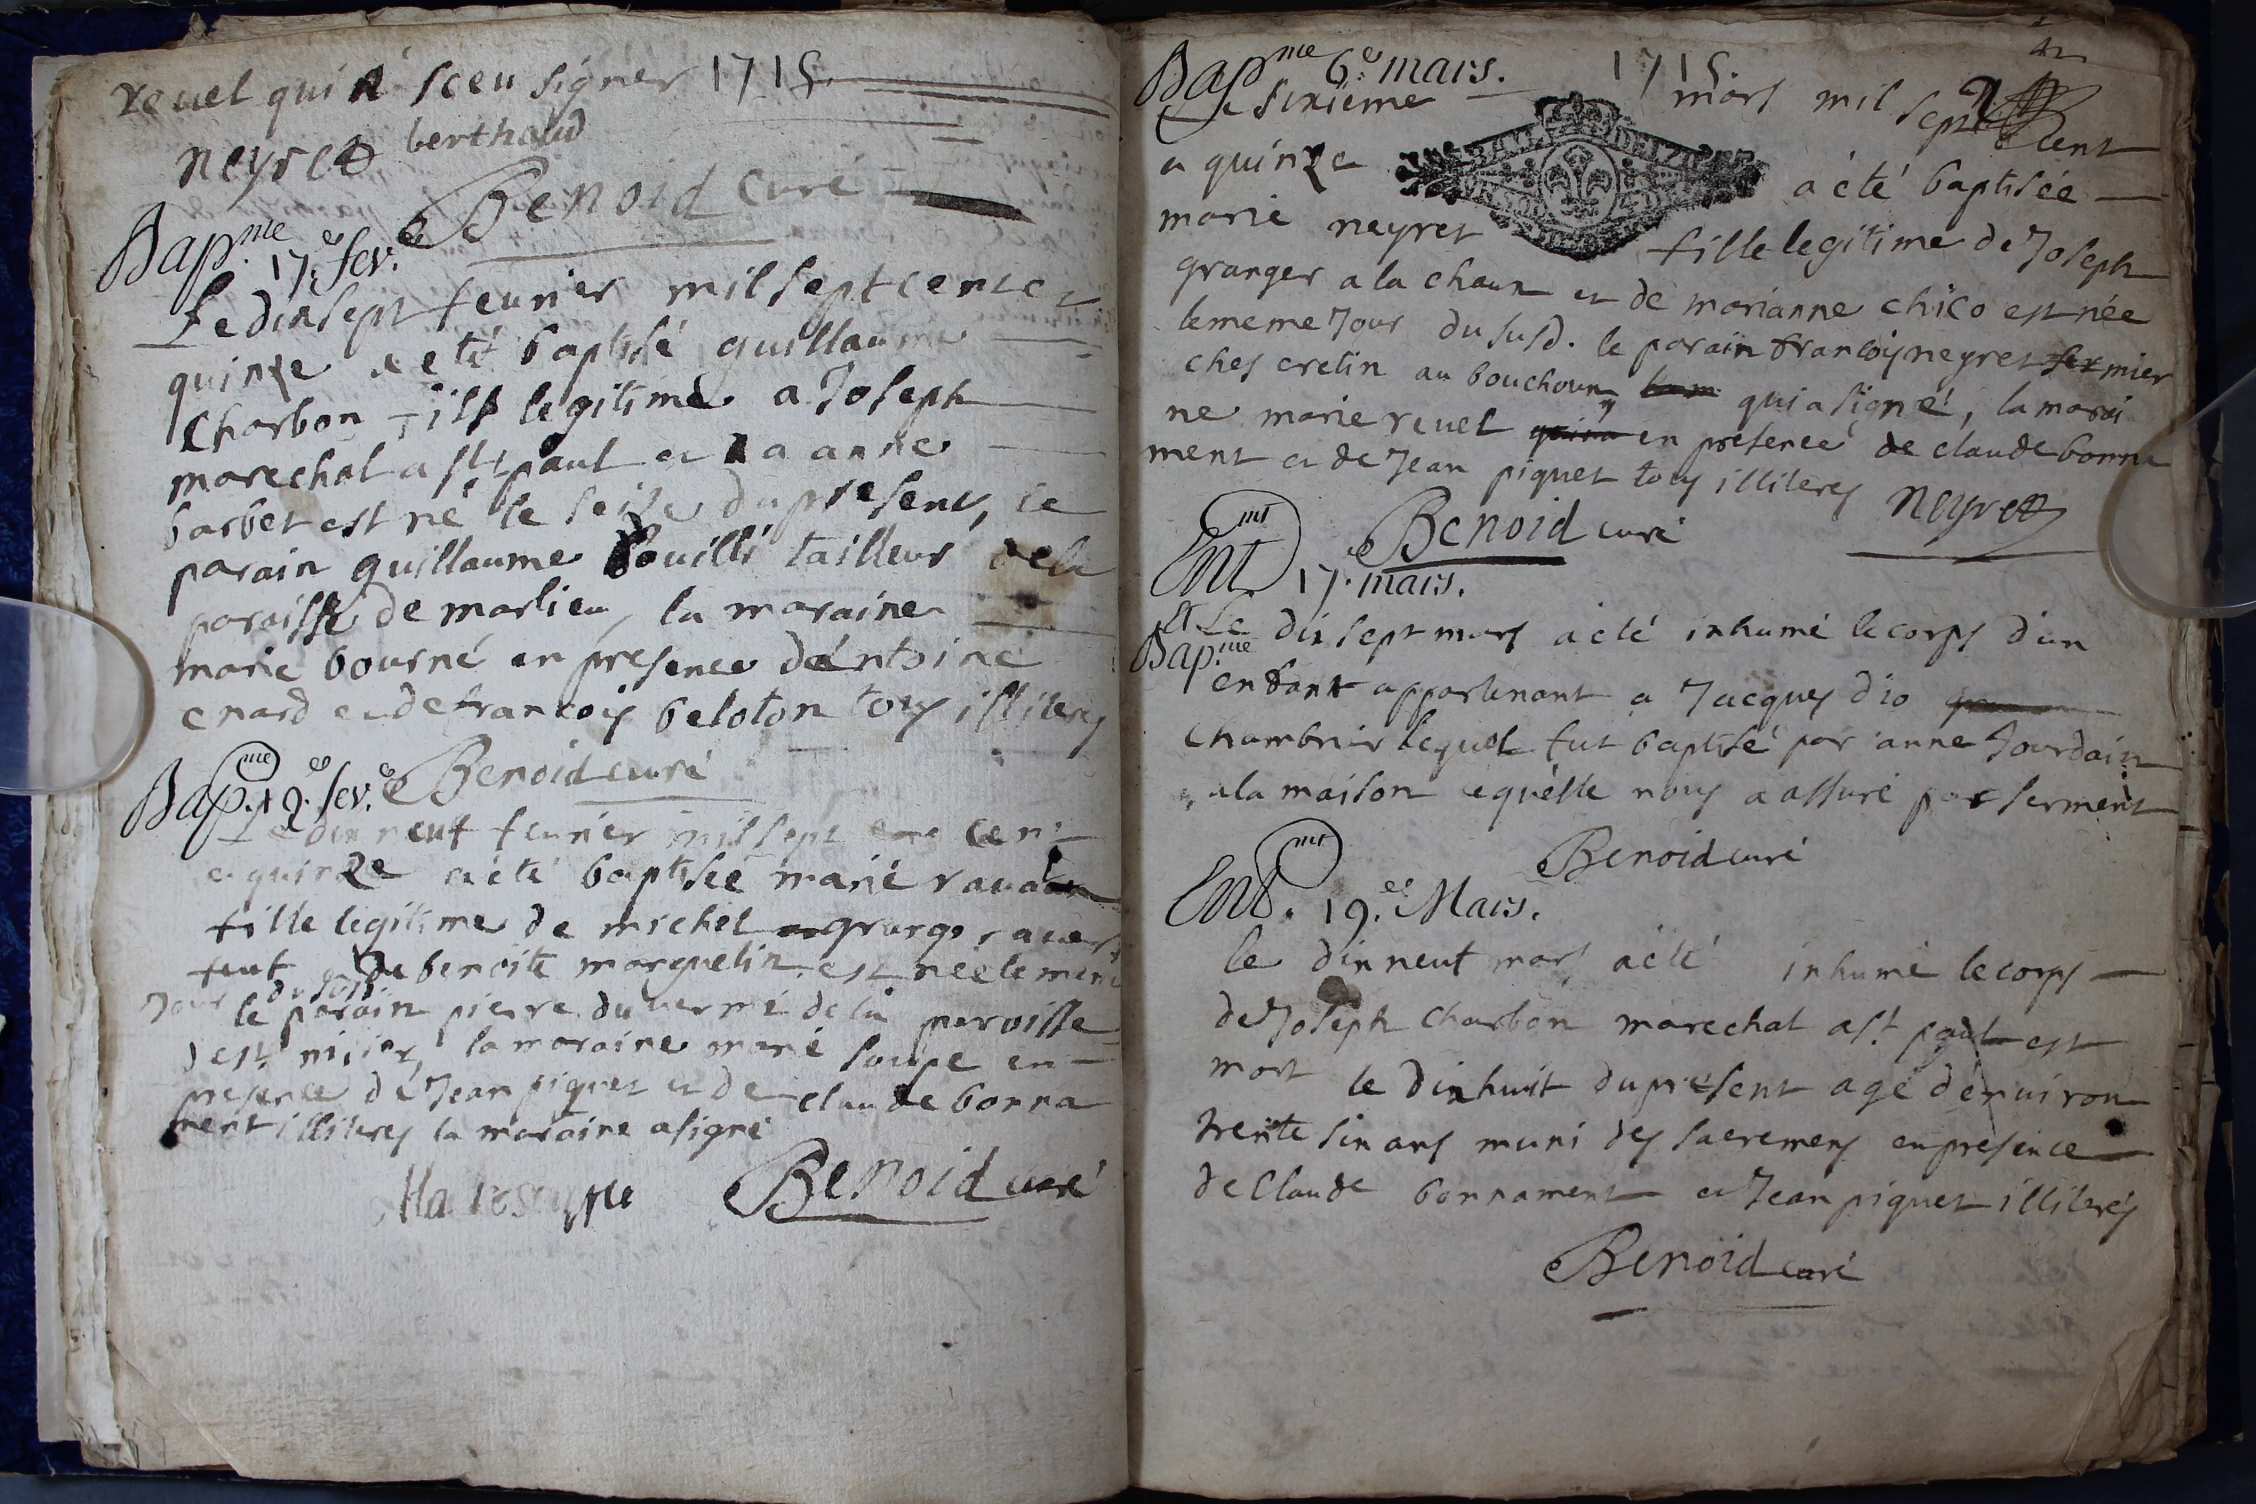 revel qui n'a sceu signer 1715
neyret berthaud
Benoid curé
Bap.me 17.e fev.
Le dixsept feurier mil sept cent et
quinze a eté baptisé guillaume
charbon fils legitime a Joseph
marechal a st paul et a anne
barbet est né le seise du present, le
parain guillaume bouillé tailleur de la
paroisse de marlieu, la maraine
marie bourné en presence d'antoine
enard et de francois beloton tous illiteres
Benoid curé
Bap.me 19.e fev.
Le dix neuf feurier mil sept cent
et quinze a eté baptisée marie
fille legitime de michel
de benoite marguelin est née le meme
jour du susd. le parain pierre duvermé de la paroisse
de st nisier, la maraine marie soupe en
presence de Jean piquet et de claude bonna
ment illiteres la maraine a signé
Benoid curé
Bap.me 6.e mars. 1715
Le sixieme mars mil sept cent
et quinze a eté baptisée
marie neyret fille legitime de Joseph
granger a la chaux et de marianne chico est née
le meme jour du susd. le parain francois neyret fermier
ches cretin au bouchoux qui a signé, la marai
ne marie revel en presence de claude bonna
ment et de Jean piquet tous illiteres
neyret
Benoid curé
Ent.mt 17. mars.
et Bap.me
Le dix sept mars a eté inhumé le corps d'un
enfant appartenant a Jacques dio
chambrier lequel fut baptisé par anne Jourdain
a la maison ce qu'elle nous a assuré par serment
Benoid curé
Ent.mt 19.e Mars.
le dix neuf mars a eté inhumé le corps
de Joseph charbon marechal a st. paul est
mort le dixhuit du present agé d'environ
trente six ans muni des sacremens en presence
de Claude bonnament et Jean piquet illiterés
Benoid curé